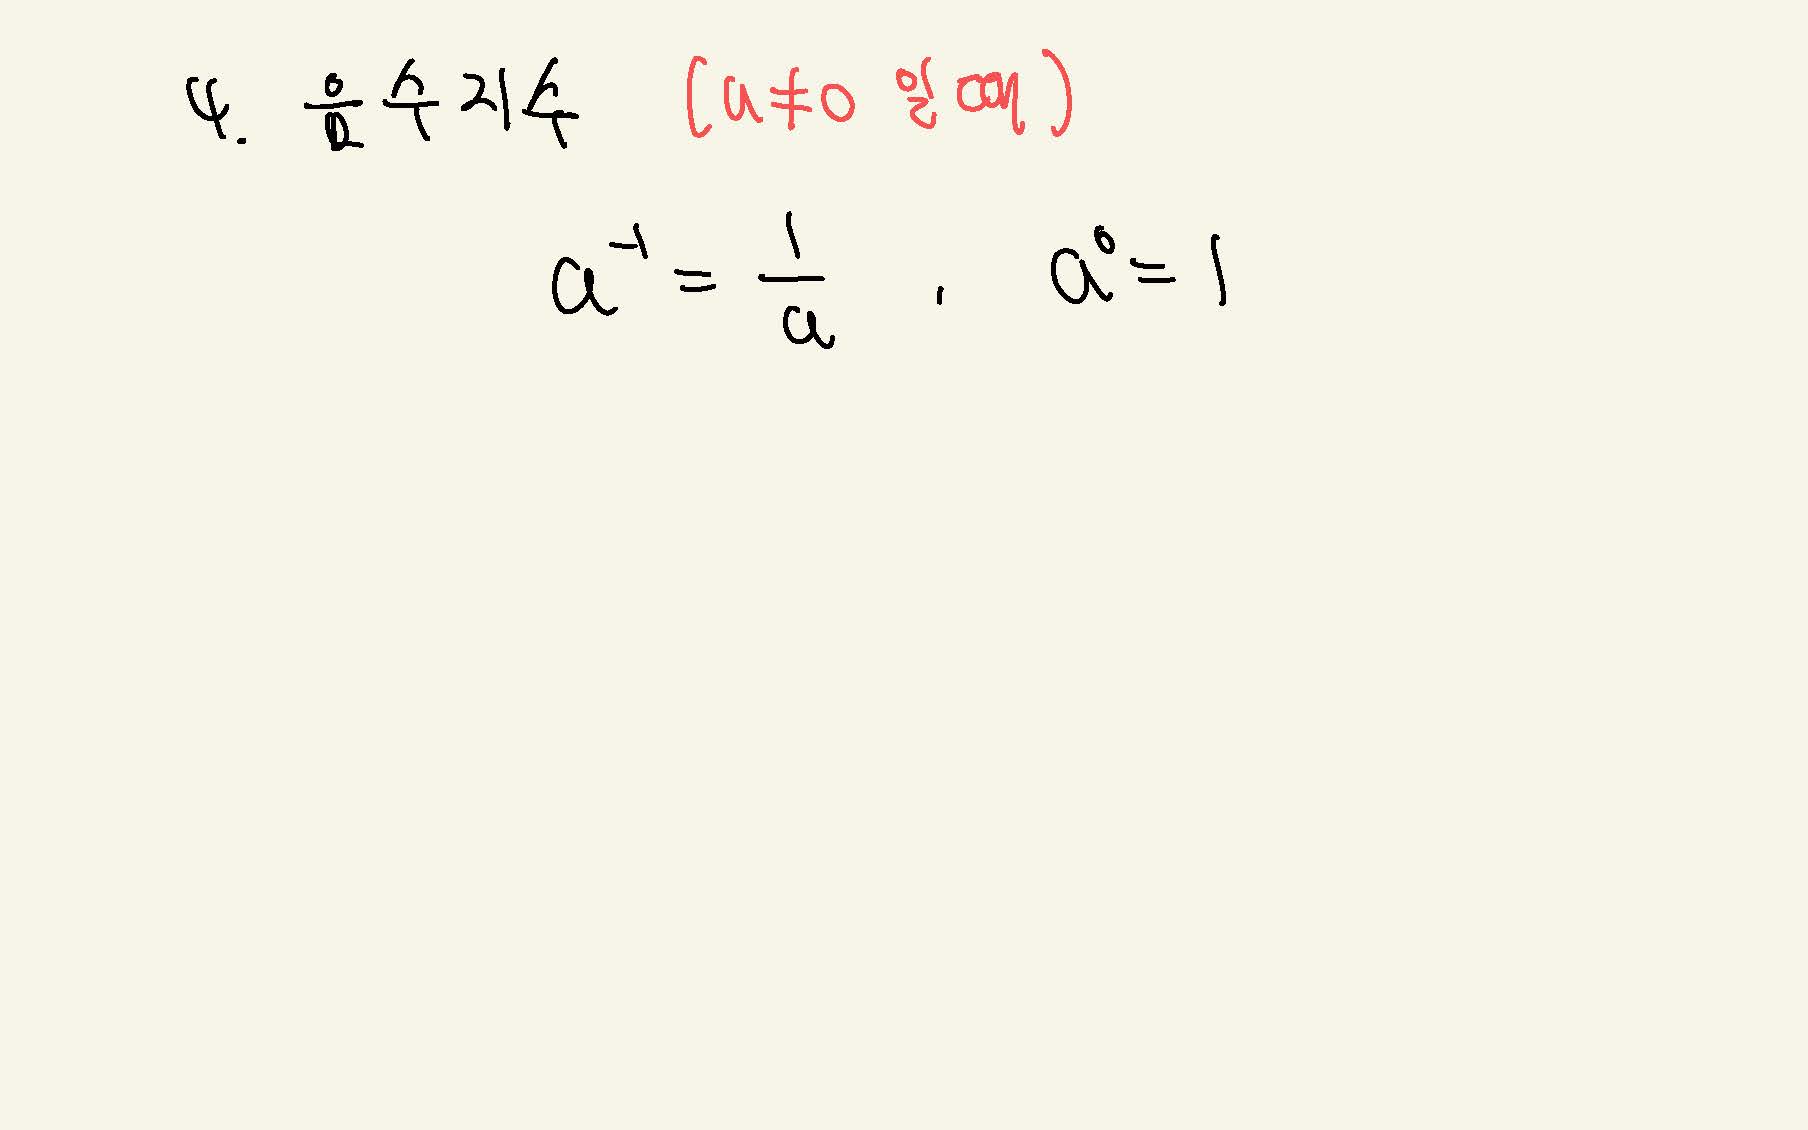 4. 음수지수 (a≠0 일때)
a⁻¹ = 1/a , a⁰ = 1